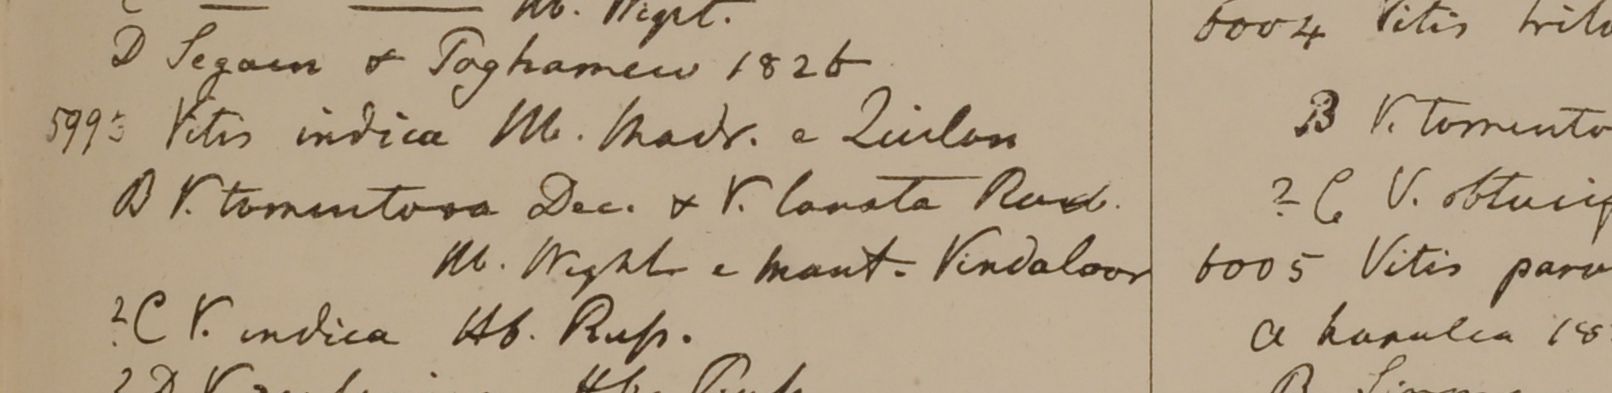 Hb. Wight.
D Segaen & Toghamew 1826
5995 Vitis indica Hb. Madr. e Quilon
B V. tomentosa Dec. & V. lanata Roxb.
Hb. Wight e mont. Vendaloor
?C V. indica Hb. Russ.
?D V.
6004 Vitis trilo
B V. tomento
?C V. obtusif
6005 Vitis parv
a kanulea 18
B